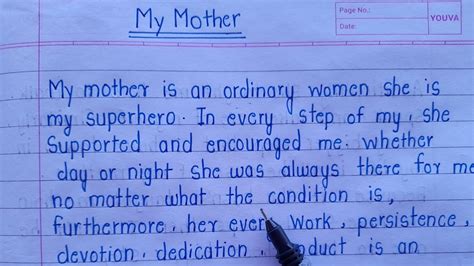 My Mother
Page No.:
Date:
YOUVA
My mother is an ordinary women she is
my superhero. In every step of my, she
supported and encouraged me. whether
day or night she was always there for me
no matter what the condition is,
furthermore, her every work, persistence,
devotion, dedication, is an